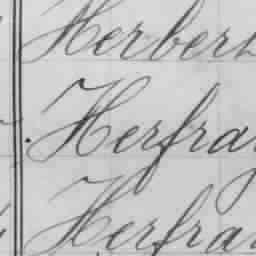 Herbert
Herfray
Herfra